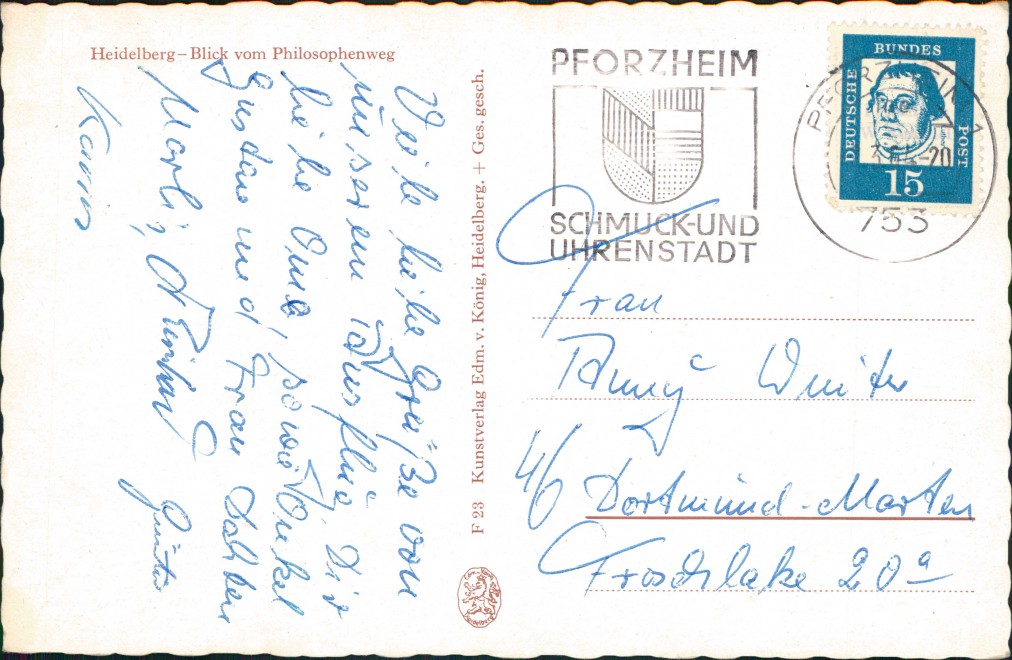 Heidelberg – Blick vom Philosophenweg
Viele liebe Grüße von
unserem Ausflug Dir
liebe Oma, sowie Onkel
Gustav und Frau Dahlber
Marlis, Günter
Karin
F 23 Kunstverlag Edm. v. König, Heidelberg. + Ges. gesch.
PFORZHEIM
SCHMUCK-UND
UHRENSTADT
DEUTSCHE
BUNDES
POST
15
PFORZHEIM 1
-20
753
Frau
Winter
46 Dortmund-Marten
Froschlake 20a